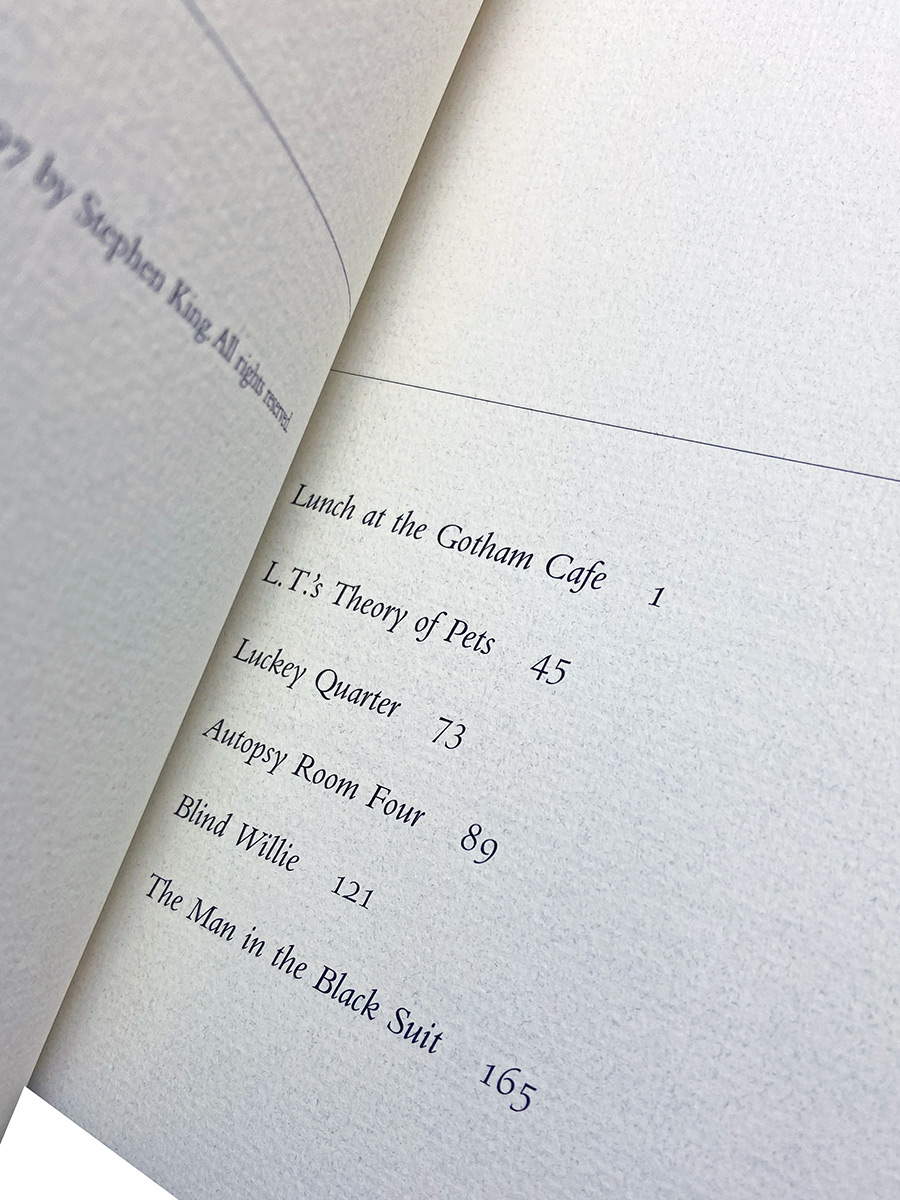 97 by Stephen King. All rights reserved.
Lunch at the Gotham Cafe 1
L. T.'s Theory of Pets 45
Luckey Quarter 73
Autopsy Room Four 89
Blind Willie 121
The Man in the Black Suit 165